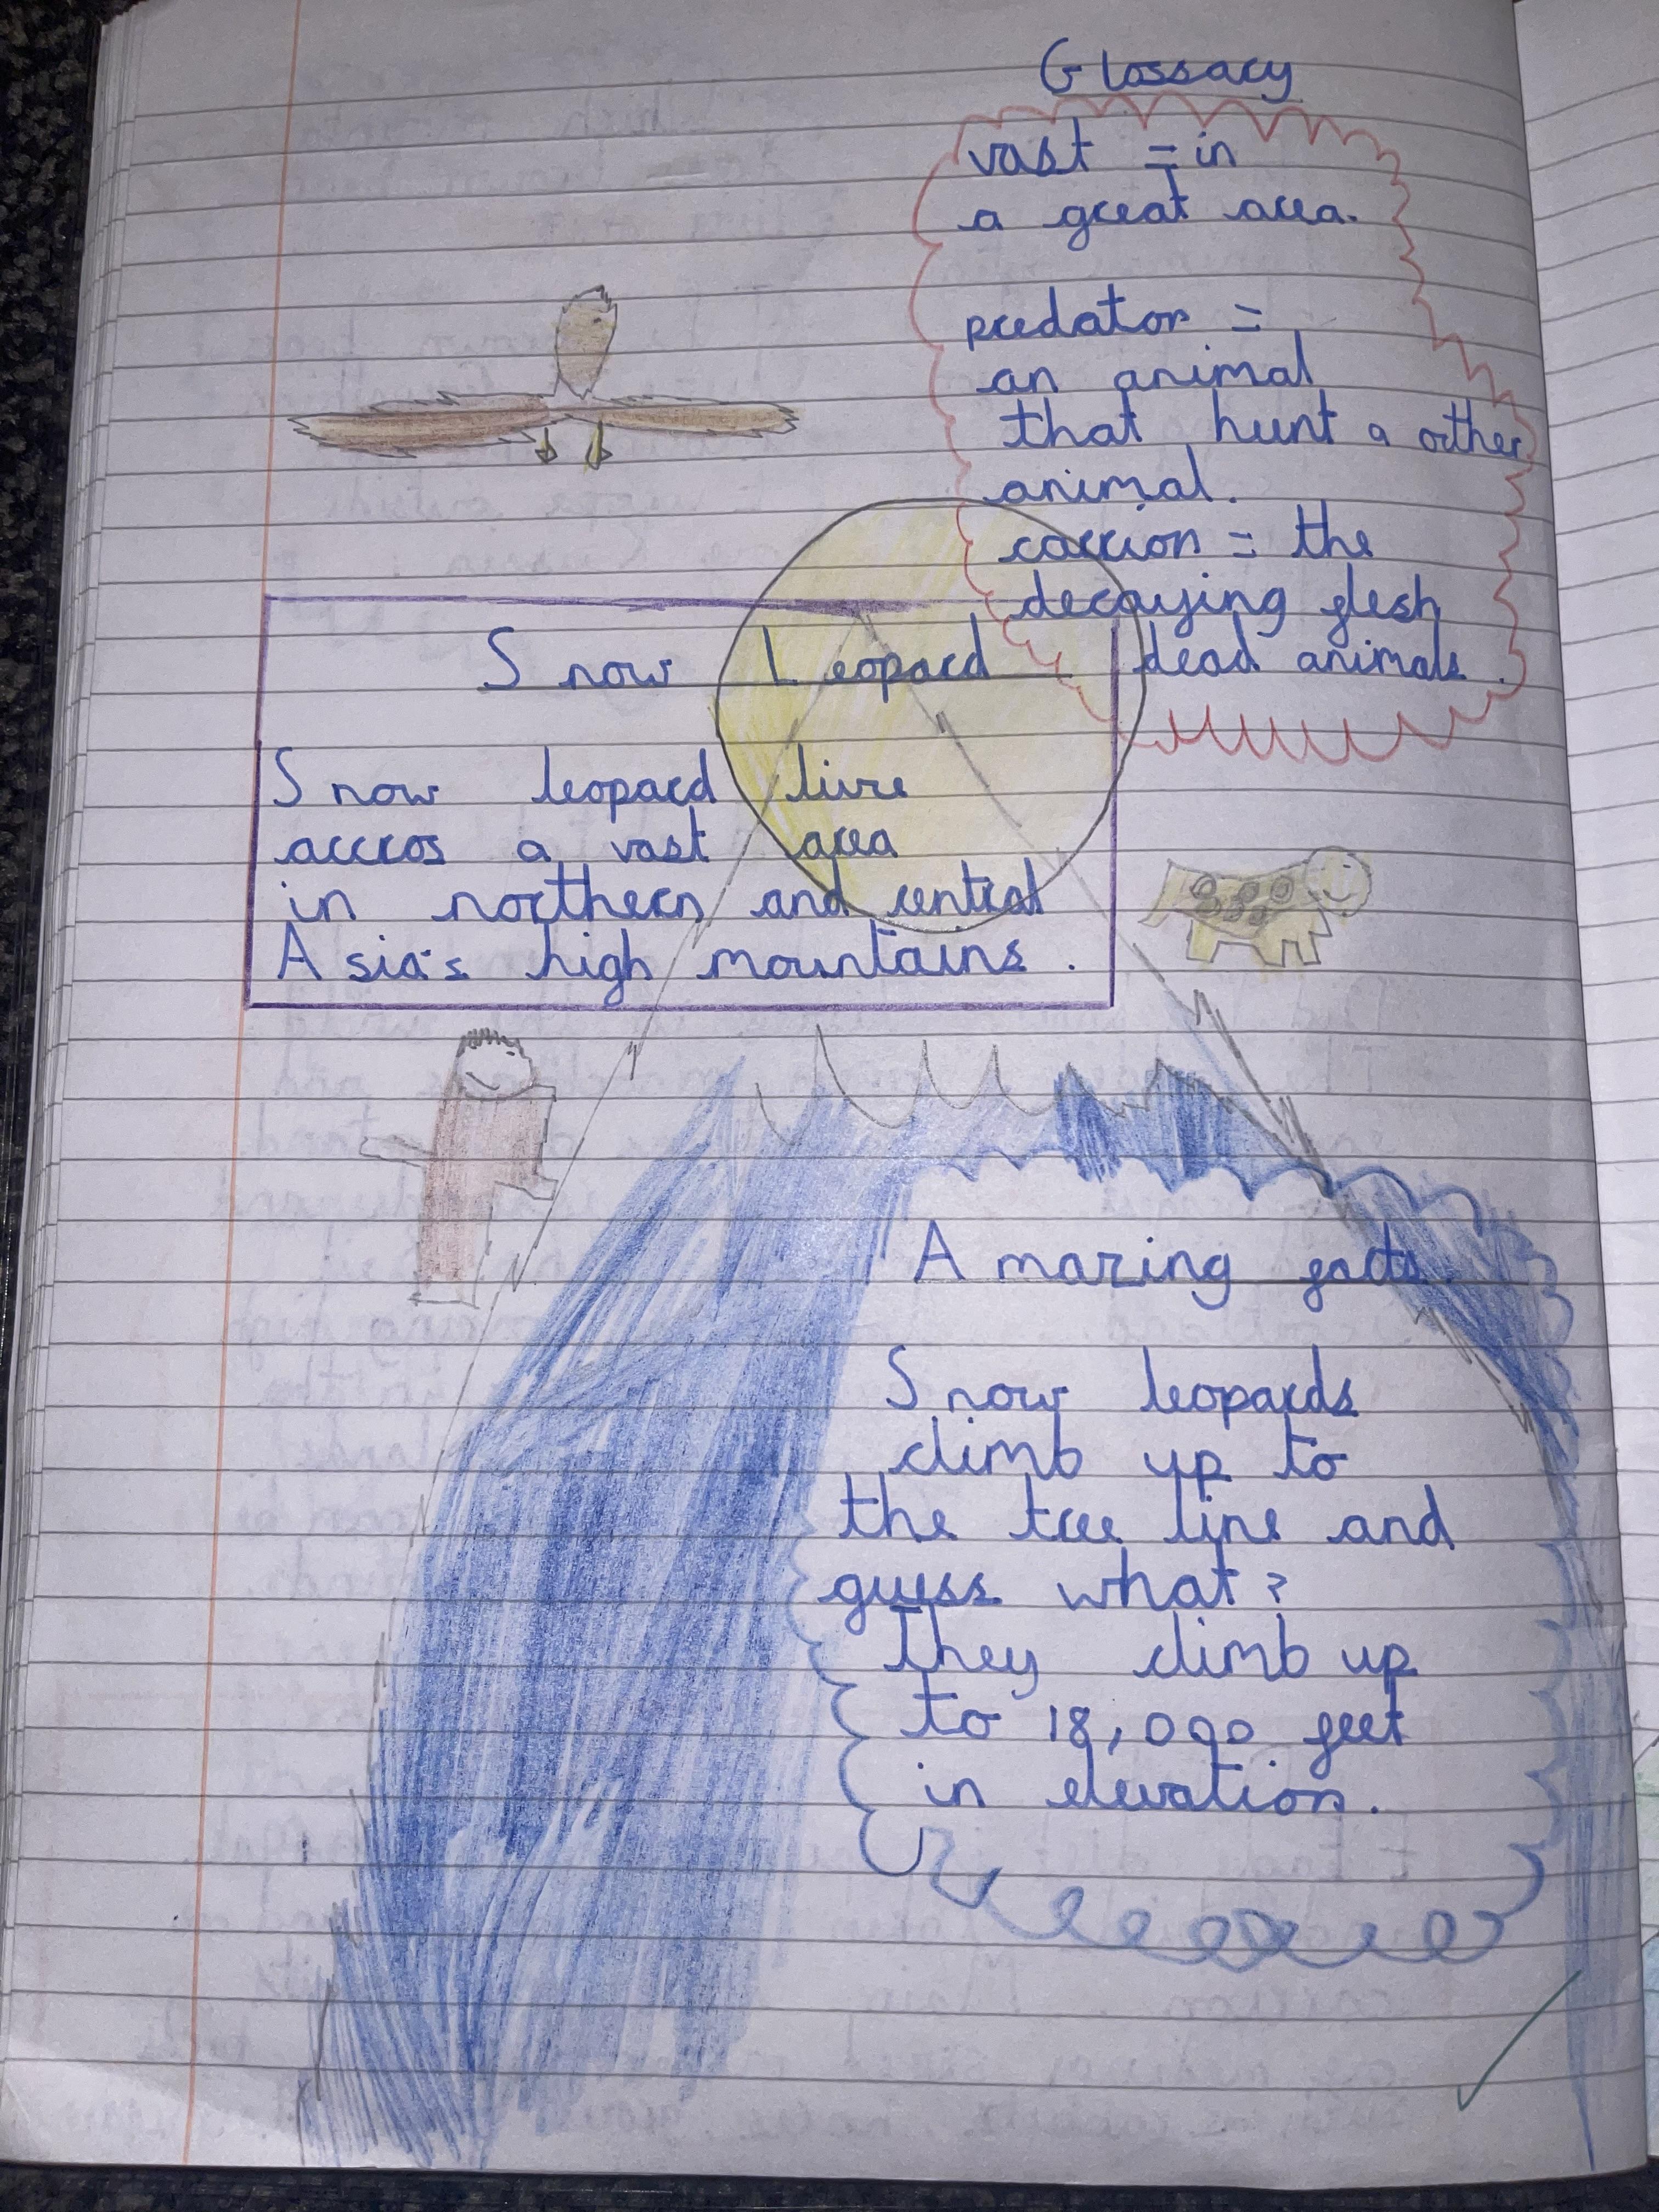 Glossary
vast = in
a great area.
predator =
an animal
that hunt a orther
animal.
carrion = the
decaying flesh
dead animals.
Snow Leopard
Snow leopard live
accros a vast area
in northern and central
Asia's high mountains.
Amazing facts.
Snow leopards
climb up to
the tree line and
guess what?
They climb up
to 18,000 feet
in elevation.